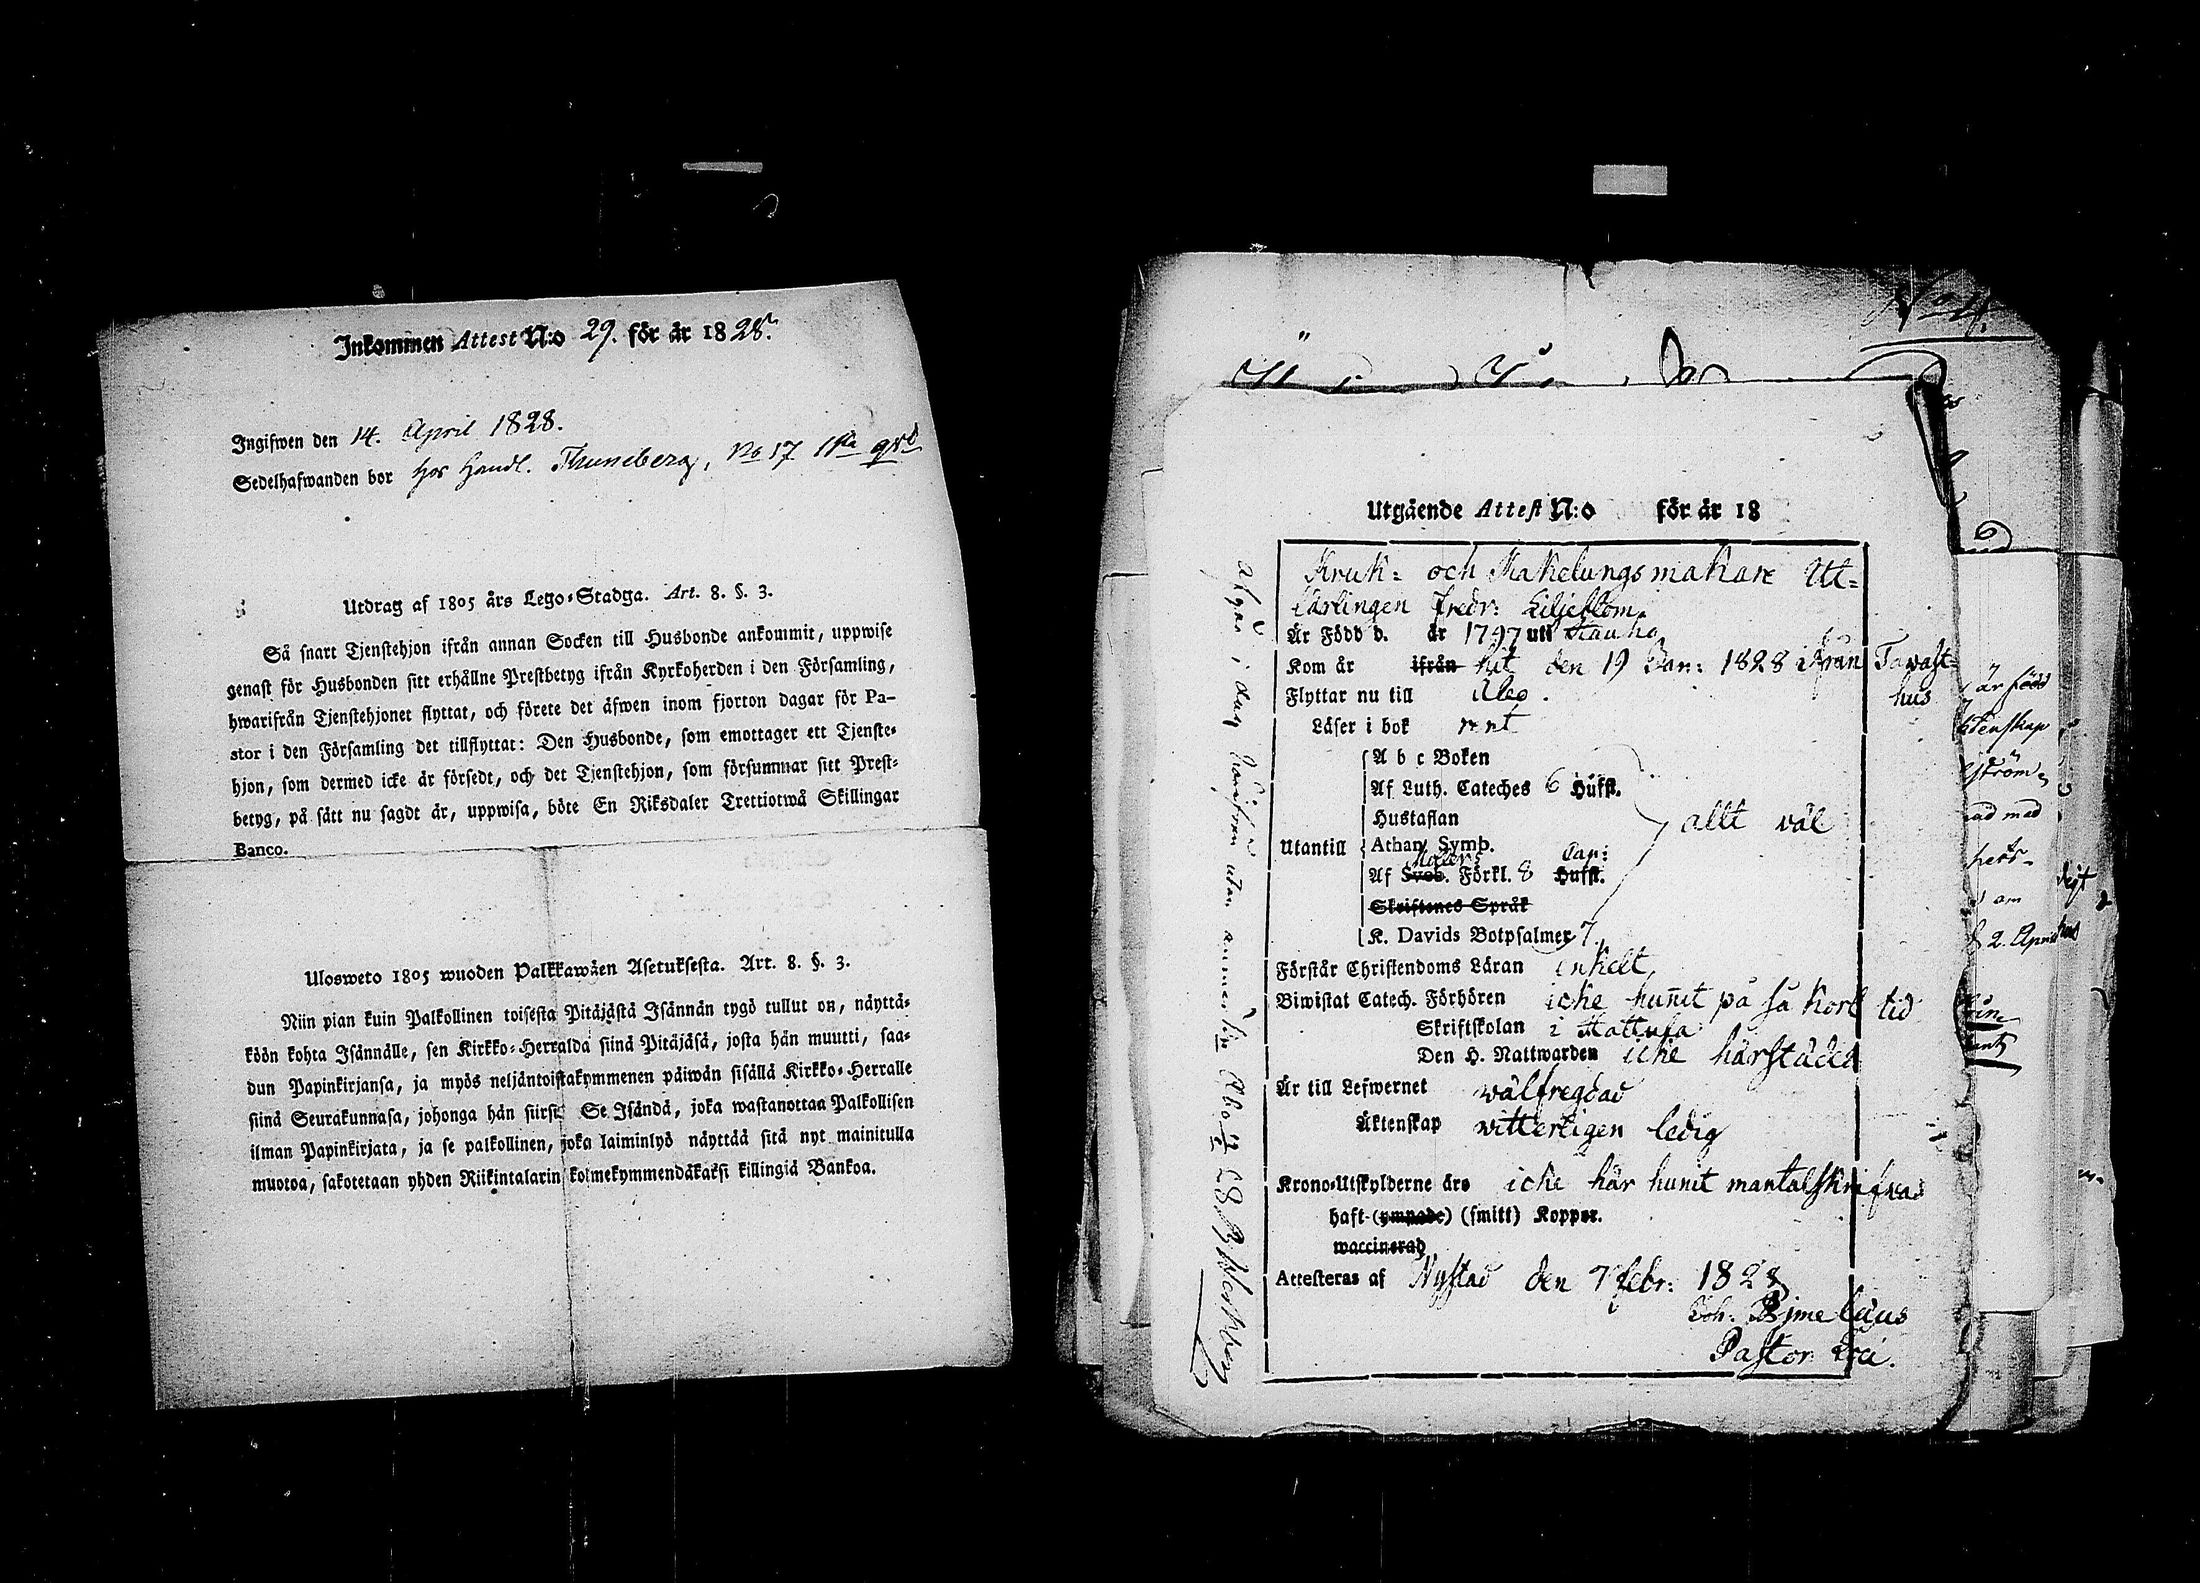 Inkommen Attest N:o 29. för år 1828.
Ingifwen den 14. April 1828.
Sedelhafwanden bor hos Handl. Thuneberg, No 17 1sta qrt
Utdrag af 1805 års Lego-Stadga. Art. 8. §. 3.
Så snart Tjenstehjon ifrån annan Socken till Husbonde ankommit, uppwise
genast för Husbonden sitt erhållne Prestbetyg ifrån Kyrkoherden i den Församling,
hwarifrån Tjenstehjonet flyttat, och förete det äfwen inom fjorton dagar för Pa-
stor i den Församling det tillflyttat: Den Husbonde, som emottager ett Tjenste-
hjon, som dermed icke är försedt, och det Tjenstehjon, som försummar sitt Prest-
betyg, på sätt nu sagdt är, uppwisa, böte En Riksdaler Trettiotwå Skillingar
Banco.
Ulosweto 1805 wuoden Palkkawäen Asetuksesta. Art. 8. §. 3.
Niin pian kuin Palkollinen toisesta Pitäjästä Isännän tygö tullut on, näyttä-
köön kohta Isännälle, sen Kirkko-Herralda siinä Pitäjäsä, josta hän muutti, saa-
dun Papinkirjansa, ja myös neljäntoistakymmenen päiwän sisällä Kirkko-Herralle
siinä Seurakunnasa, johonga hän siirsi: Se Isändä, joka wastanottaa Palkollisen
ilman Papinkirjata, ja se palkollinen, joka laiminlyö näyttää sitä nyt mainitulla
muotoa, sakotetaan yhden Riikintalarin kolmekymmendäkaksi killingiä Bankoa.
Utgående Attest N:o för år 18
Kruk- och Kakelungsmakare Ut-
lärlingen Fredr: Liljeblom.
Är Född d. år 1797 uti Kauho
Kom år ifrån hit den 19 Jan: 1828 ifrån Tawast-
hus
Flyttar nu till Åbo.
Läser i bok rent
A b c Boken
Af Luth. Cateches 6 Hufst.
Hustaflan
Utantill Athan. Symb.
Af Sveb. Förkl. 8 Hufst. Cap:
Skriftenes Språk
K. Davids Botpsalmer 7.
allt wäl
Förstår Christendoms Läran enkelt
Biwistat Catech. Förhören icke hunit på så kort tid
Skriftskolan i Hattula
Den H. Nattwarden icke härstädes
Är till Lefwernet wälfregdad
Äktenskap witterligen ledig
Krono-Utskylderne års icke här hunit mantalskrifwas
haft (ympade) (smitt) Koppor.
waccinerad
Attesteras af Nystad den 7 Febr: 1828
Joh.
Pastor Loci.
i dag
utan
är född
ktenskap
ström
2. April